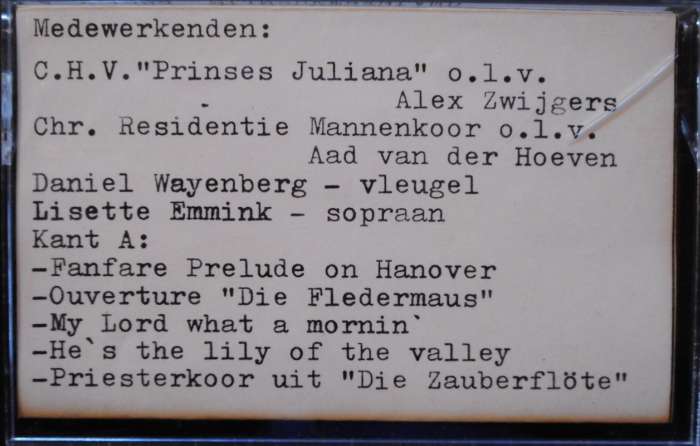 Medewerkenden:
C.H.V."Prinses Juliana" o.l.v.
Alex Zwijgers
Chr. Residentie Mannenkoor o.l.v.
Aad van der Hoeven
Daniel Wayenberg - vleugel
Lisette Emmink - sopraan
Kant A:
-Fanfare Prelude on Hanover
-Ouverture "Die Fledermaus"
-My Lord what a mornin`
-He`s the lily of the valley
-Priesterkoor uit "Die Zauberflöte"